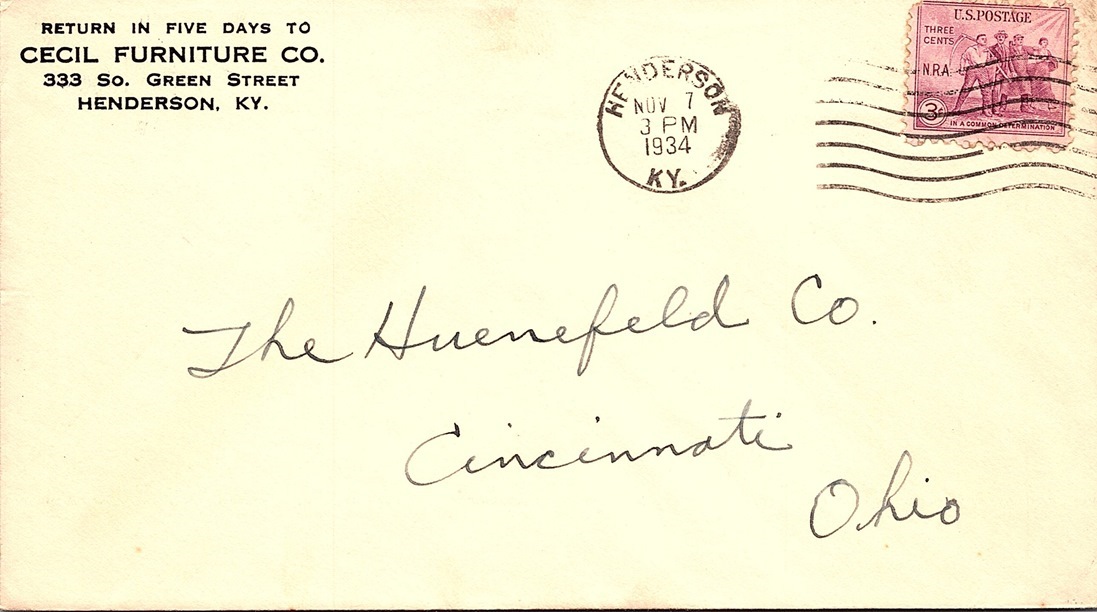 RETURN IN FIVE DAYS TO
CECIL FURNITURE CO.
333 So. Green Street
HENDERSON, KY.
HENDERSON
NOV 7
3 PM
1934
KY.
U.S. POSTAGE
THREE
CENTS
N.R.A.
3¢
IN A COMMON DETERMINATION
The Huenefeld Co.
Cincinnati
Ohio